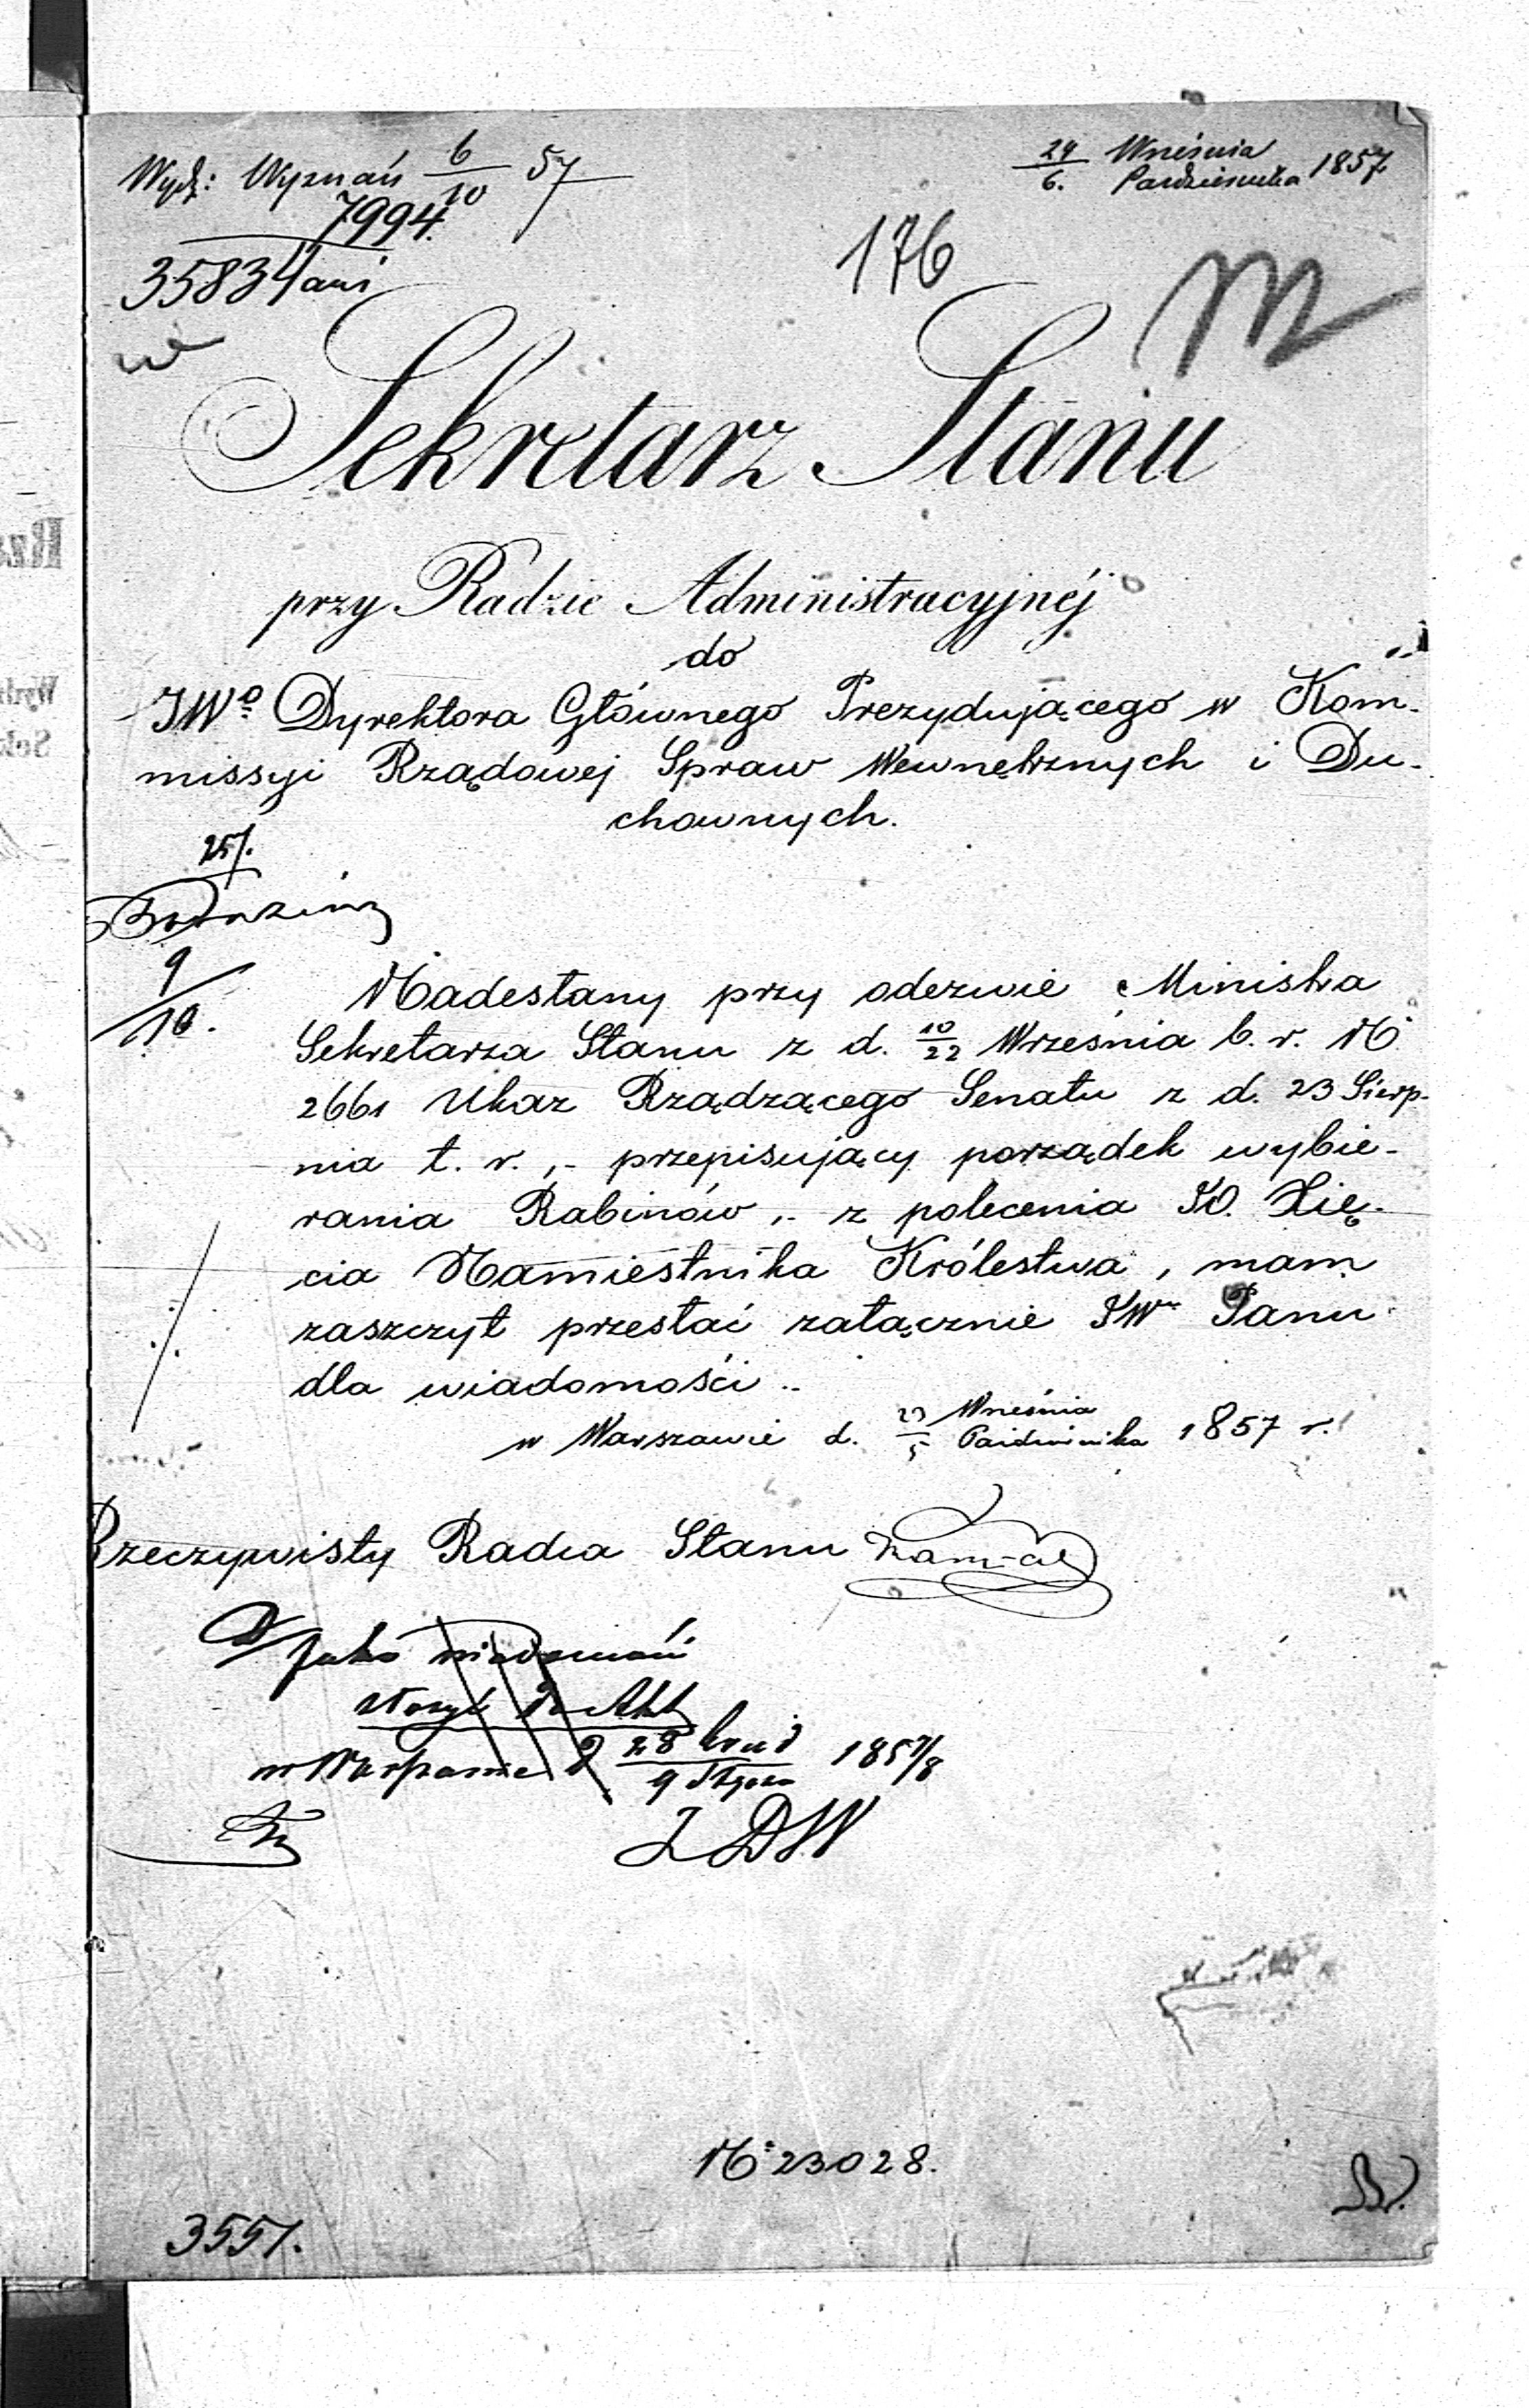 Wydz: Wyznań 6/10 57
7994.
35834
24/6. Września Października 1857
176
Sekretarz Stanu
przy Radzie Administracyjnéj
do
JWo Dyrektora Głównego Prezydującego w Kom-
missyi Rządowej Spraw Wewnętrznych i Du-
chownych.
9/10.
Nadesłany przy odezwie Ministra
Sekretarza Stanu z d. 10/22 Września b. r. No
2661 Ukaz Rządzącego Senatu z d. 23 Sierp-
nia t. r., - przepisujący porządek wybie-
rania Rabinów, - z polecenia JO. Xię-
cia Namiestnika Królestwa, mam
zaszczyt przesłać załącznie JWu Panu
dla wiadomości..
w Warszawie d. 23/5 Września Października 1857 r.
Rzeczywisty Radca Stanu
Jako wiadomość
złożyć do Akt
w Warszawie d 28 Grud 9 Stycz 1857/8
No 23028.
3551.